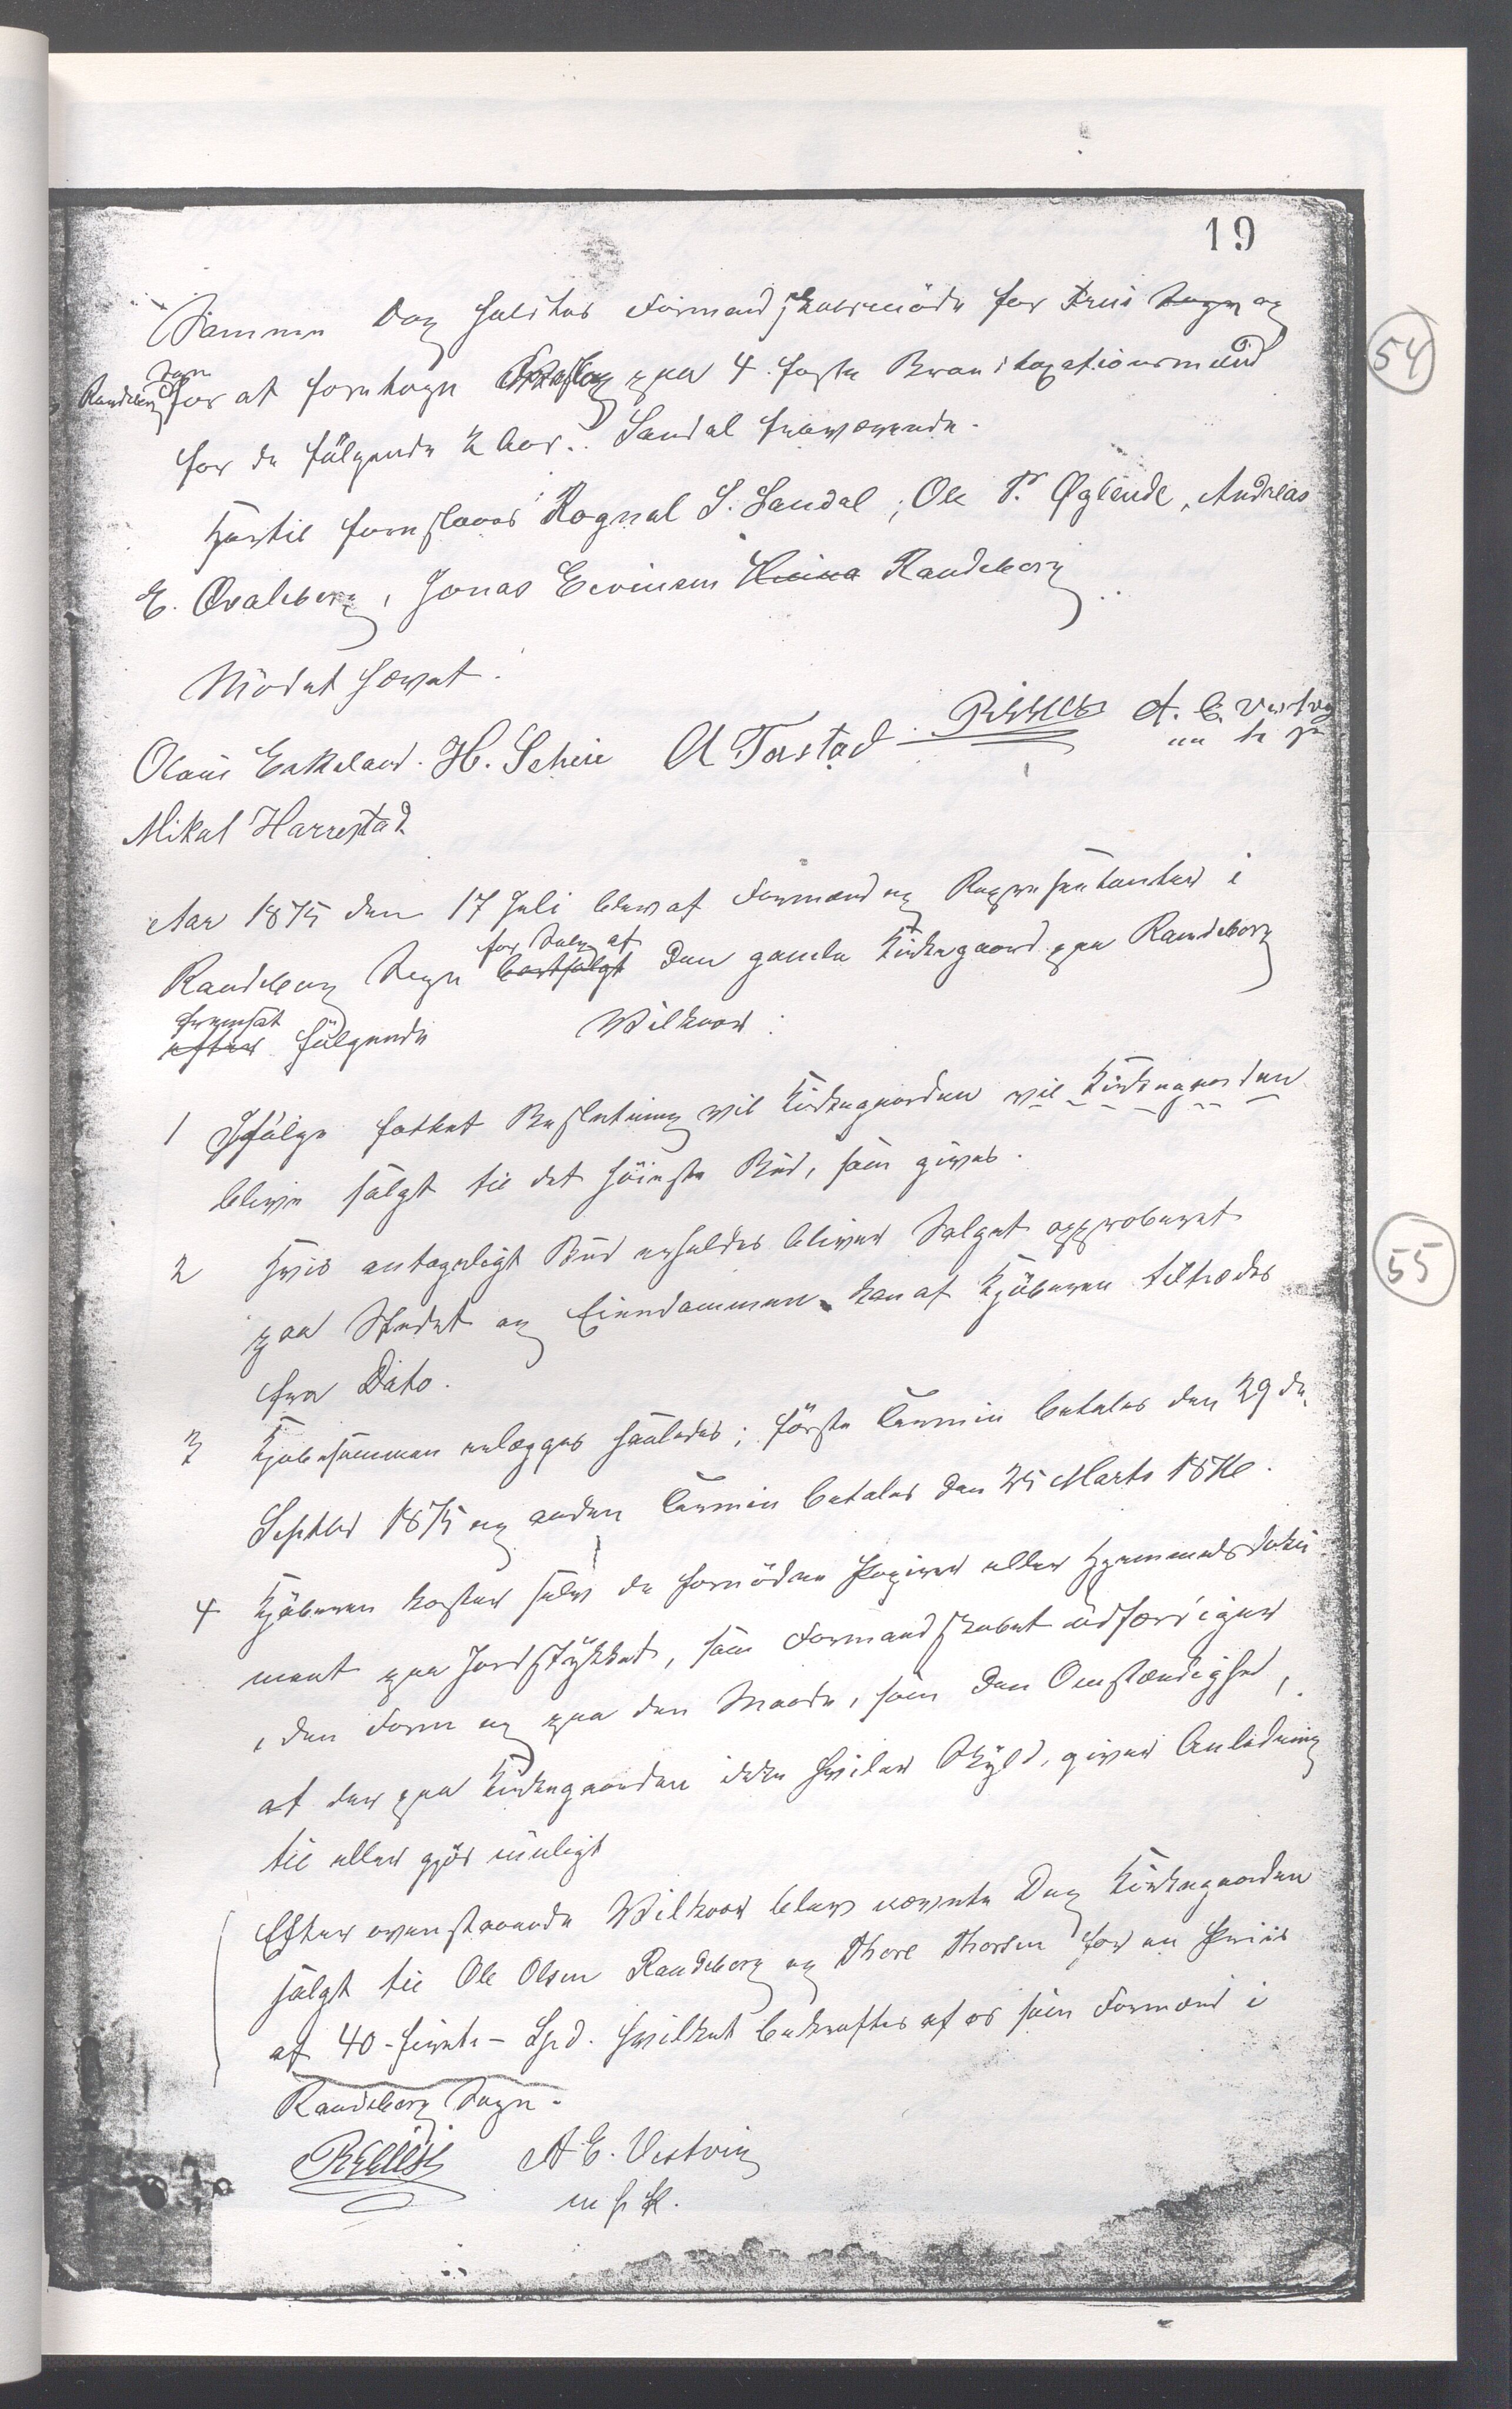 19
Samme Dag holdtes Formandskabsmöde for Sogn og
Randeberg Sogn for at foretage Forslag paa 4 faste Brandtaxationsmænd
for de fölgende 2 Aar. Sandal fraværende.
Hertil foresloges Rognal S. Sandal, Ole Pr Øglende, Andreas
E. Qvaleberg, Jonas Eevinsen Randeberg
Mödet hævet.
Olaus Eskeland. H. Scheie A Torstad A. E. Vestvig
m f P
Mikal Harrestad
54
Aar 1875 den 17 Juli blev af Formænd og Repræsentanter i
Randeberg Sogn bortsolgt for Salg af den gamle Kirkegaard paa Randeberg
efter fremsat fölgende Vilkaar:
1 Ifölge fattet Beslutning vil Kirkegaarden vil Kirkegaarden
blive solgt til det höieste Bud, som gives.
2 Hvis antageligt Bud erholdes bliver Salget approberet
paa Stedet og Eiendommen kan af Kjöberen tiltrædes
fra Dato.
55
3 Kjöbesummen erlægges saaledes; förste Termin betales den 29 de
Septbr 1875 og anden Termin betales den 25 Marts 1876.
4 Kjöberen koster selv de fornödne Papirer eller Hjemmelsdoku
ment paa Jordstykket, som Formandskabet udfærdiger
i den Form og paa den Maade, som den Omstændighed,
at der paa Kirkegaarden ikke hviler Skyld, giver Anledning
til eller gjör muligt
Efter ovenstaaende Vilkaar blev nævnte Dag Kirkegaarden
solgt til Ole Olsen Randeberg og Thore Thorsen for en Priis
af 40 - firti - Spd. hvilket bekræftes af os som Formænd i
Randeberg Sogn.
A E. Vestvig
m f P.